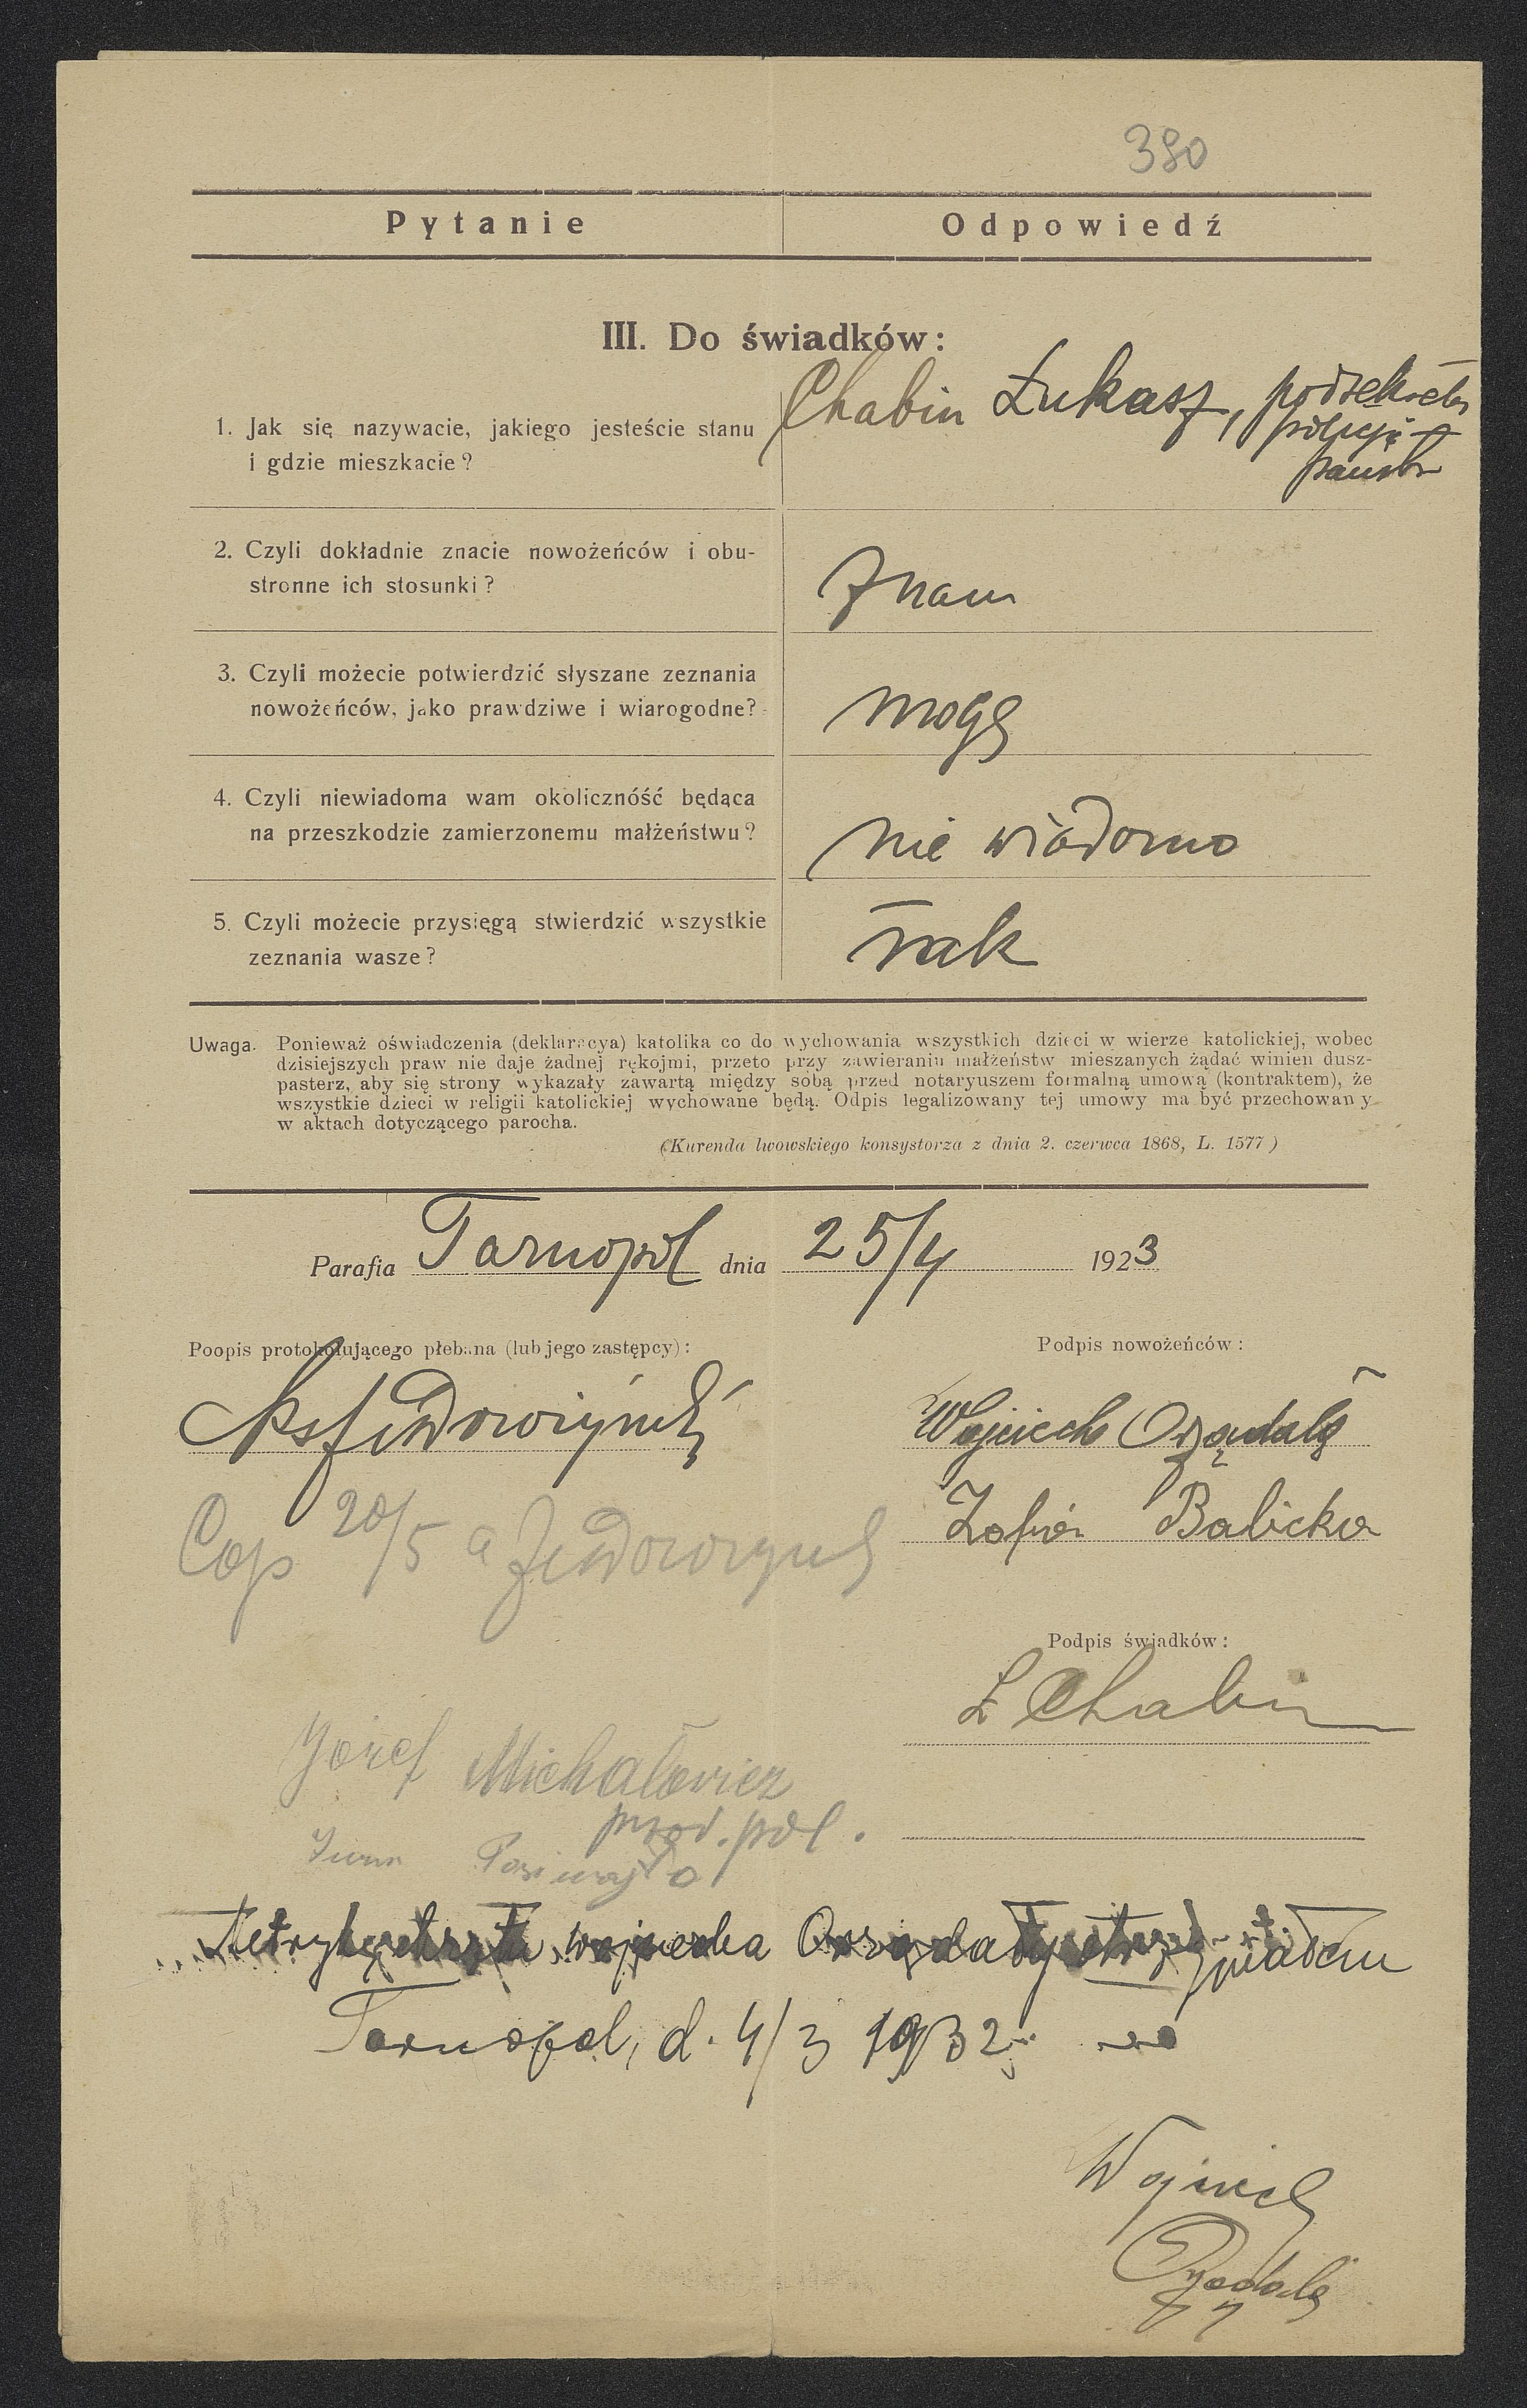 380
Pytanie
Odpowiedź
III. Do świadków:
1. Jak się nazywacie, jakiego jesteście stanu
i gdzie mieszkacie?
Chabin Łukasz, podsekretarz
policji
państw
2. Czyli dokładnie znacie nowożeńców i obu-
stronne ich stosunki?
Znam
3. Czyli możecie potwierdzić słyszane zeznania
nowożeńców, jako prawdziwe i wiarogodne?
mogę
4. Czyli niewiadoma wam okolicznóść będąca
na przeszkodzie zamierzonemu małżeństwu?
nie wiadomo
5. Czyli możecie przysięgą stwierdzić wszystkie
zeznania wasze?
Tak
Uwaga. Ponieważ oświadczenia (deklaracya) katolika co do wychowania wszystkich dzieci w wierze katolickiej, wobec
dzisiejszych praw nie daje żadnej rękojmi, przeto przy zawieraniu małżeństw mieszanych żądać winien dusz-
pasterz, aby się strony wykazały zawartą między sobą przed notaryuszem formalną umową (kontraktem), że
wszystkie dzieci w religii katolickiej wychowane będą. Odpis legalizowany tej umowy ma być przechowany
w aktach dotyczącego parocha.
(Kurenda lwowskiego konsystorza z dnia 2. czerwca 1868, L. 1577)
Parafia Tarnopol dnia 25/4 1923
Poopis protokołującego plebana (lub jego zastępcy):
Podpis nowożeńców:
Wojciech
Zofia Balicka
Cop 20/5 a
Podpis świadków:
Ł Chabin
Józef Michałowicz
przod. pol.
Metrykę chrztu Wojciecha
Tarnopol, d. 4/3 1932
Wojciech